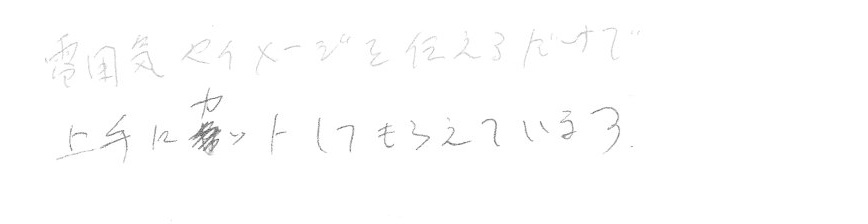 雰囲気やイメージを伝えるだけで
上手にカットしてもらえています.